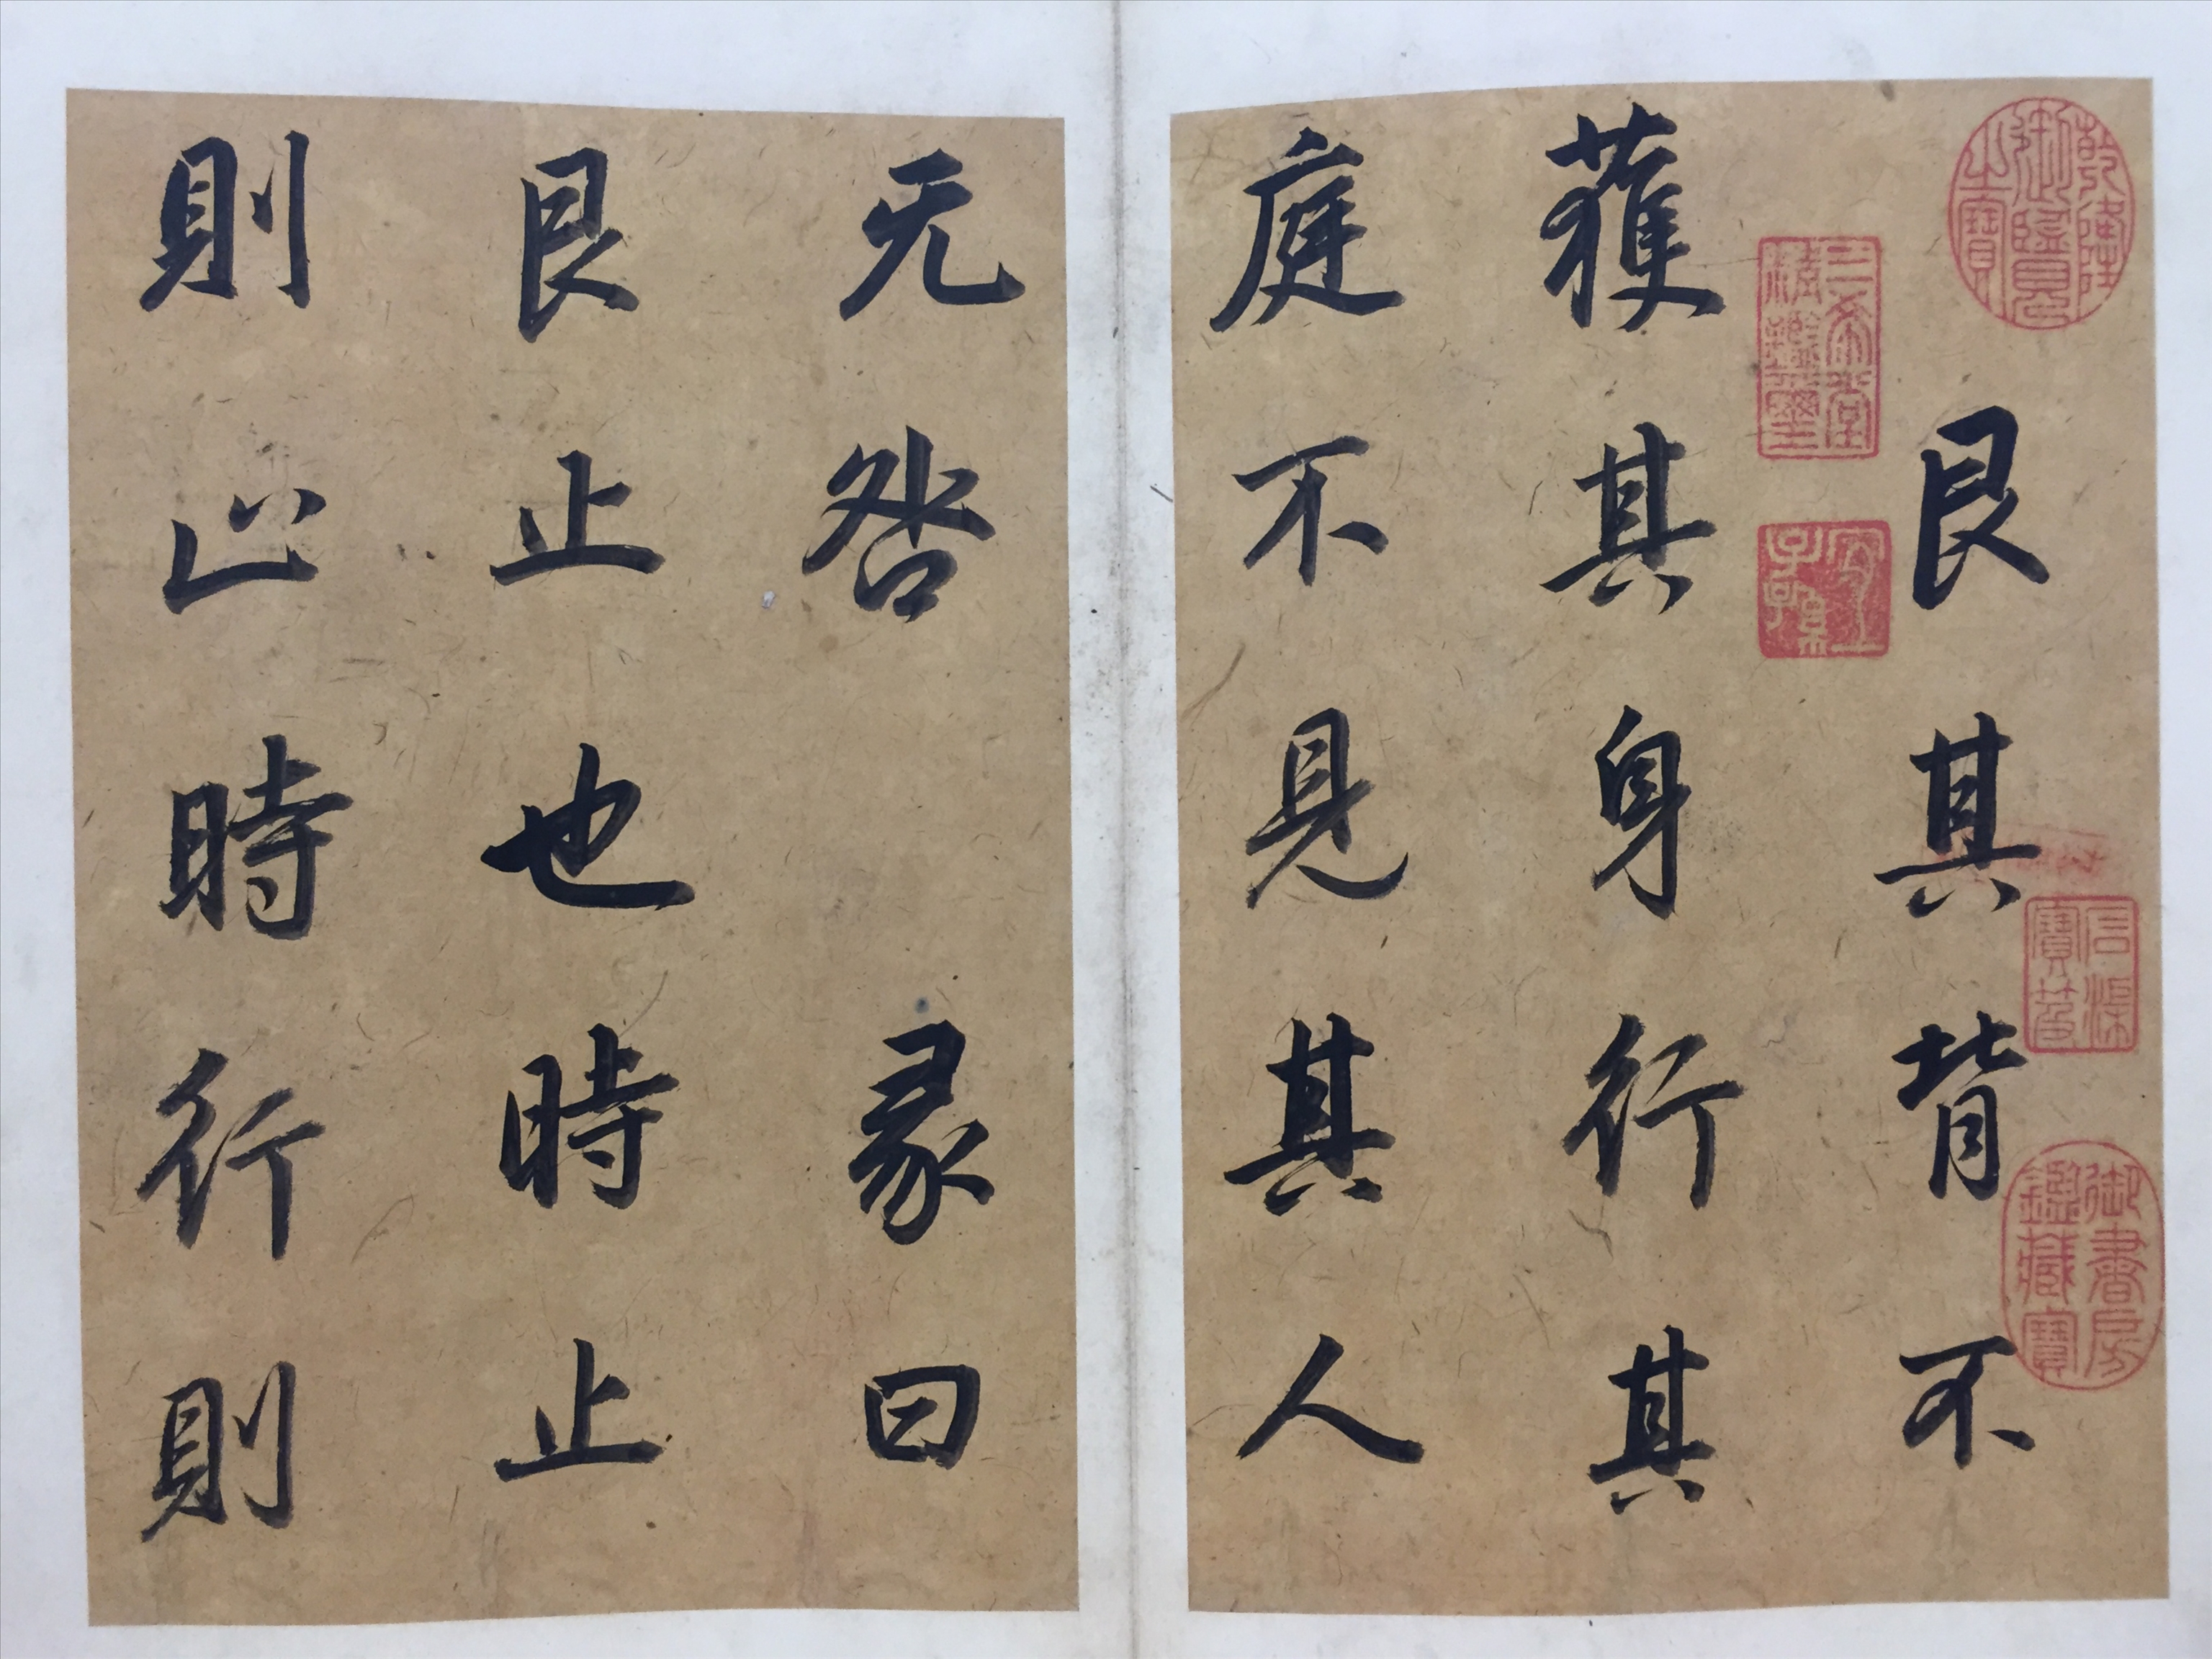 艮其背不
獲其身行其
庭不見其人
无咎 彖曰
艮止也時止
則止時行則
乾隆御覽之寶
三希堂精鑒璽
宜子孫
石渠寶笈
御書房鑑藏寶